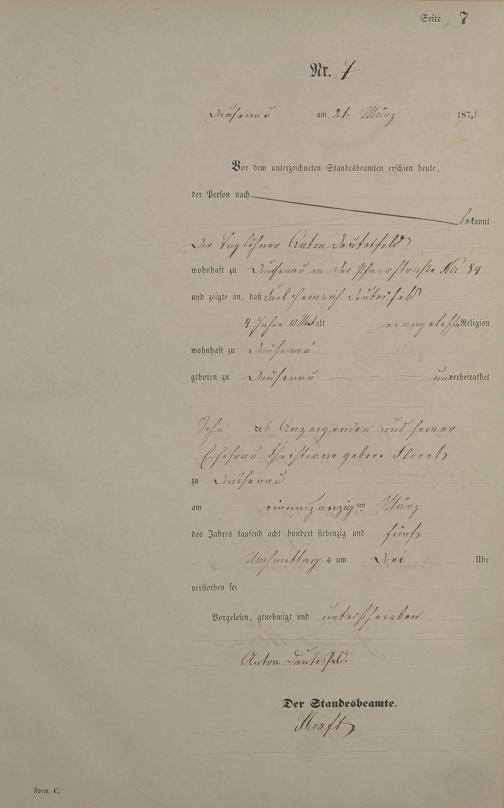 Seite 7
Nr. 7
Dausenau am 21. März 1875
Vor dem unterzeichneten Standesbeamten erschien heute,
der Person nach
bekannt
der Taglöhner Anton Deuterfeld
wohnhaft zu Dausenau in der Pfarrstraße No. 84
und zeigte an, daß Karl Heinrich Deuterfeld
4 Jahre 10 Mon alt evangelischer Religion
wohnhaft zu Dausenau
geboren zu Dausenau unverheirathet
Sohn des Anzeigenden und seiner
Ehefrau Christiane gebor.
zu Dausenau
am einundzwanzigten März
des Jahres tausend acht hundert siebenzig und fünf
Nachmittags um drei Uhr
verstorben sei
Vorgelesen, genehmigt und unterschrieben
Anton Deuterfeld.
Der Standesbeamte.
Form. C.